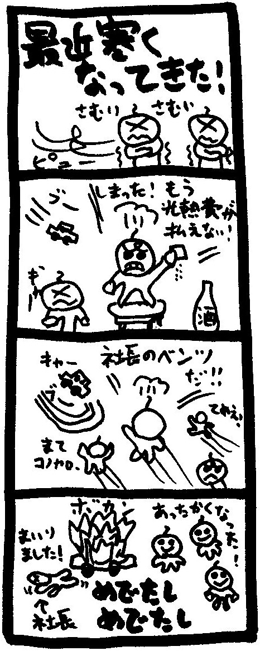 最近寒く
なってきた!
さむい
さむい
ピュー
ブー
しまった!もう
光熱費が
払えない!
ぎゃー
酒
キャー
社長のベンツ
だ!!
まて
コノヤロ。
ボカン
あったかくなった!!
まいり
ました!
社長
めでたし
めでたし